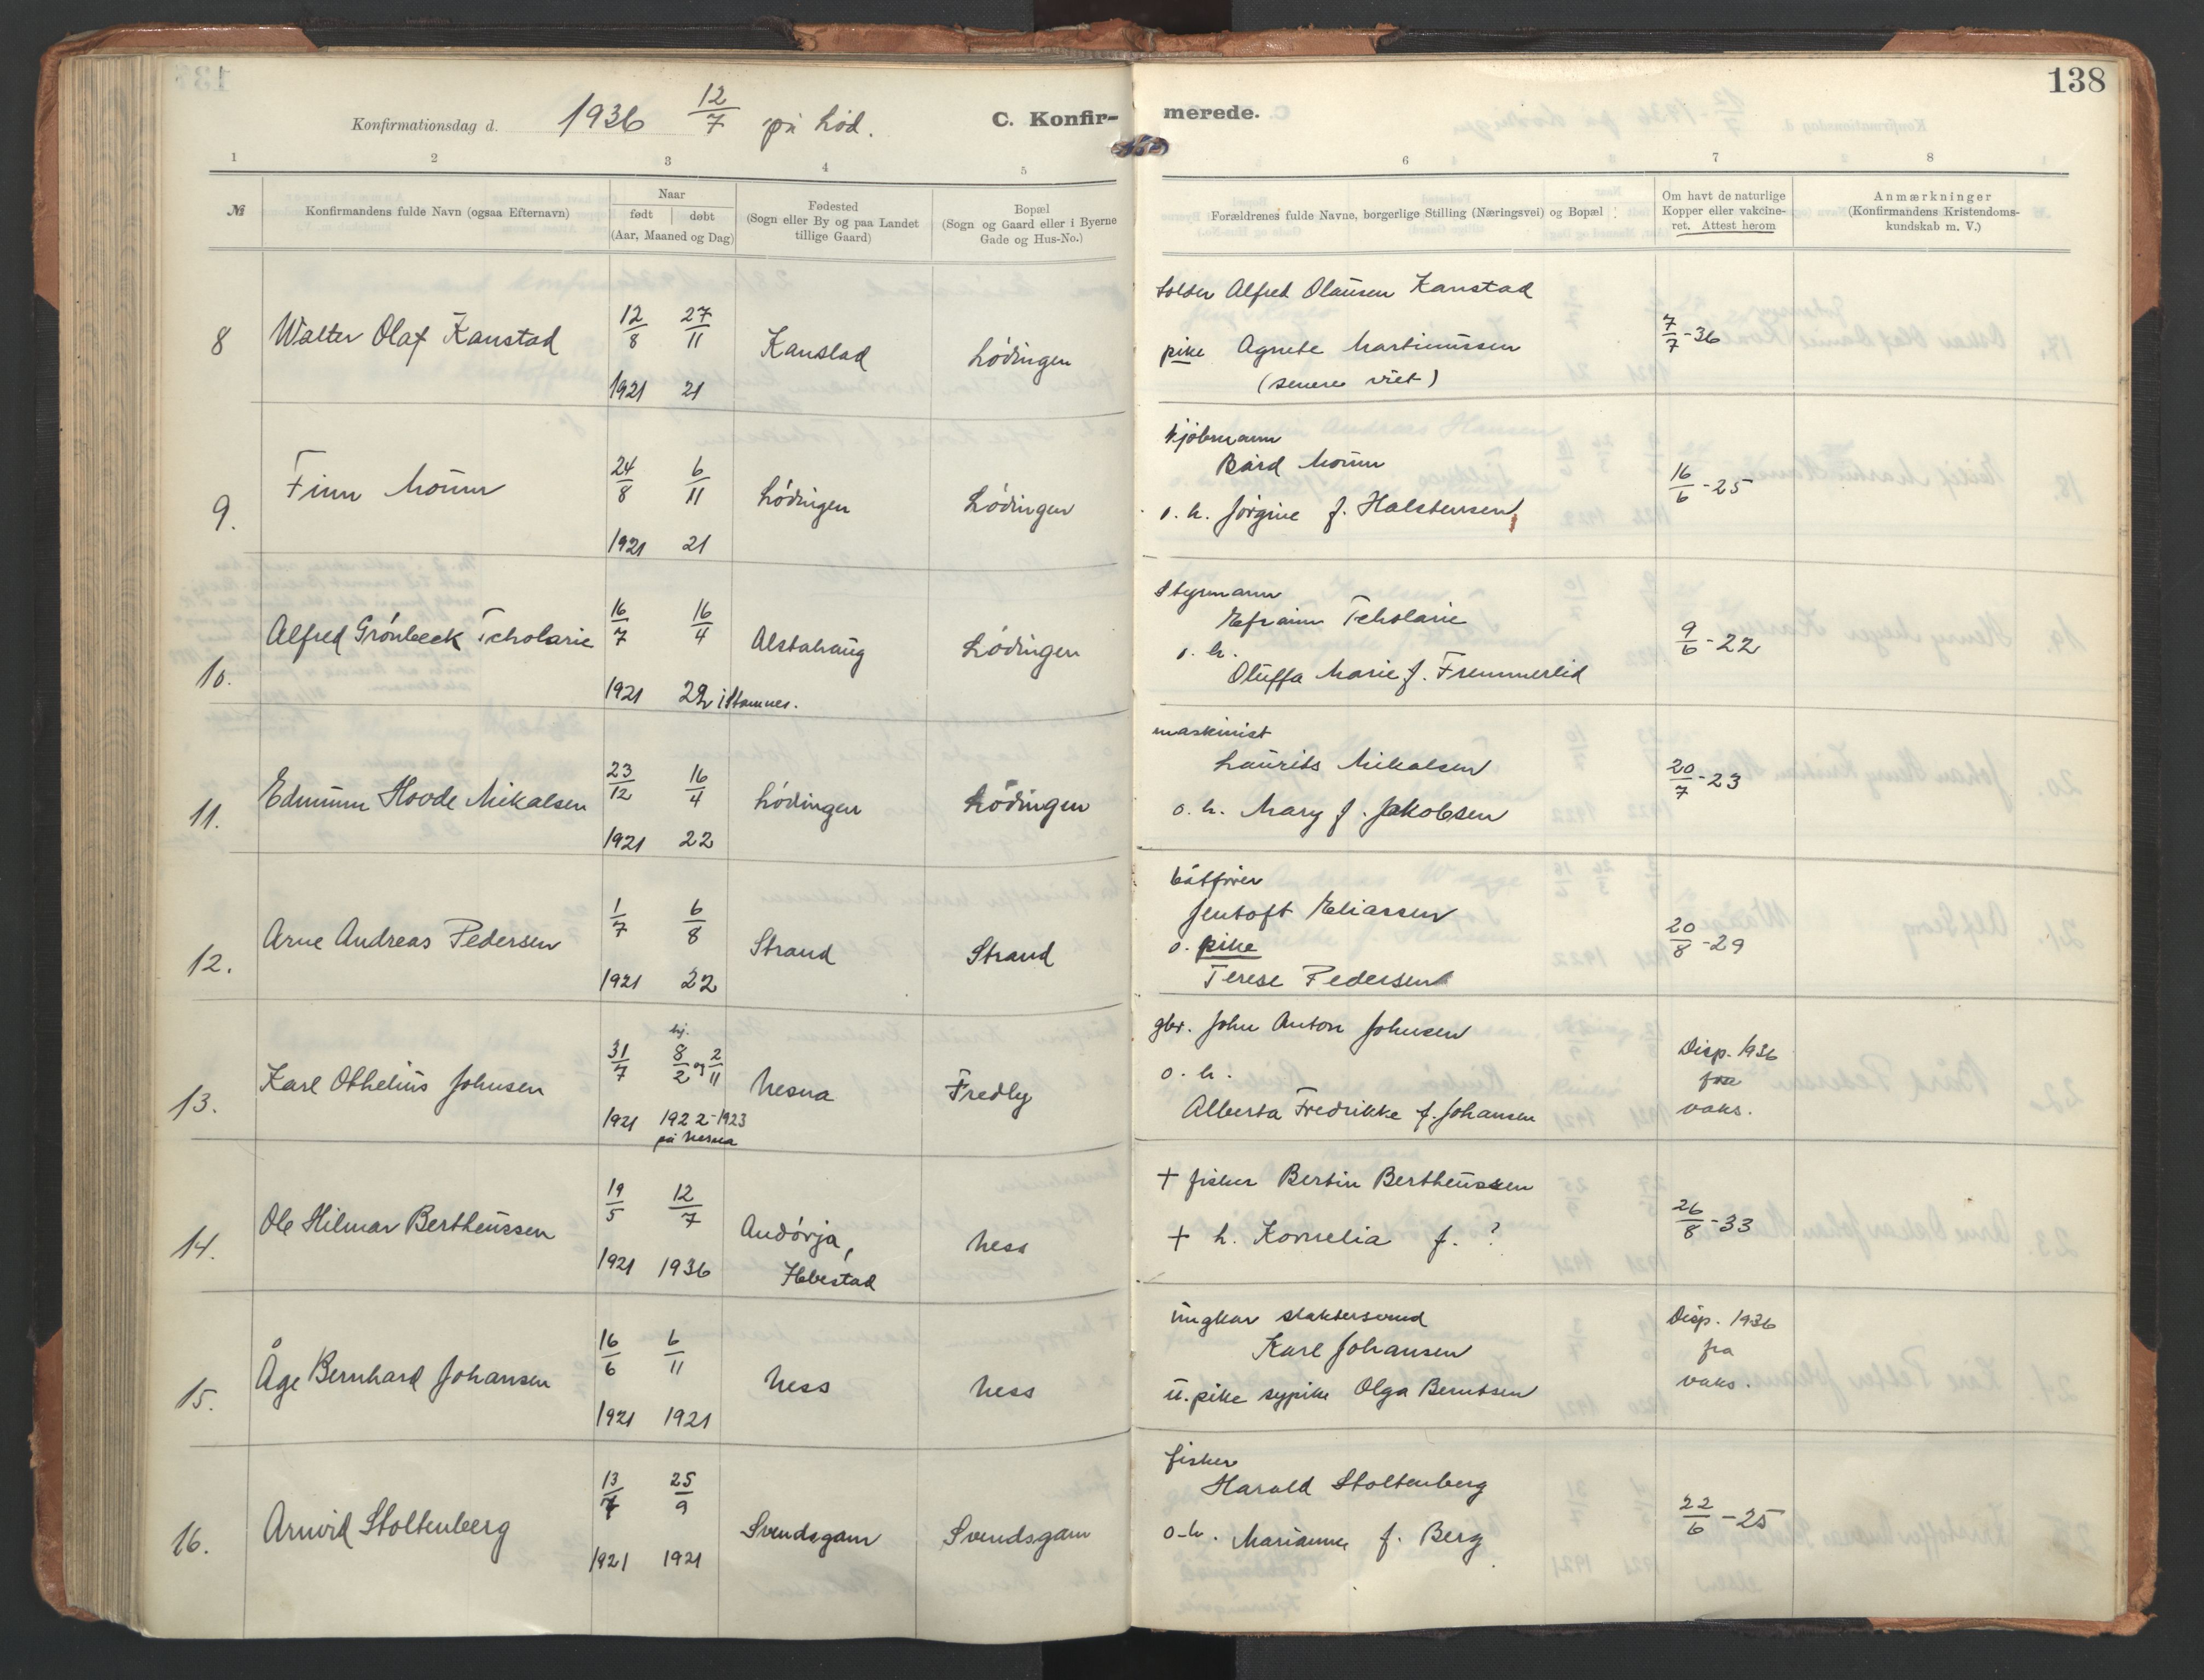 138
Konfirmationsdag d. 1936 12/7 på Lød. C. Konfir- merede.
1 2 3 4 5 6 7 8
№
Konfirmandens fulde Navn (ogsaa Efternavn)
Naar
født døbt
(Aar, Maaned og Dag)
Fødested
(Sogn eller By og paa Landet
tillige Gaard)
Bopæl
(Sogn og Gaard eller i Byerne
Gade og Hus-No.)
Forældrenes fulde Navne, borgerlige Stilling (Næringsvei) og Bopæl
Om havt de naturlige
Kopper eller vakcine-
ret. Attest herom
Anmærkninger
(Konfirmandens Kristendoms-
kundskab m. V.)
8 Walter Olaf Kanstad 12/8 27/11 Kanstad Lödingen
1921 21
Alfred Olausen Kanstad
pike Agnete Martinussen
(senere viet)
7/7-36
9. Finn Mounn 24/8 6/11 Lödingen Lödingen
1921 21
kjöbmann
Bård Mounn
o. h. Jörgine f. Halstensen
16/6-25
10. Alfred Grönbeck Tcholarie 16/7 16/4 Alstahaug Lödingen
1921 22 i Stamnes.
Styrmann
Efraim Tcholarie
o. h.
Oluffa Marie f. Fremmerlid
9/6-22
11. Edmunn Hovde Mikalsen 23/12 16/4 Lödingen Lödingen
1921 22
maskinist
Laurits Mikalsen
o. h. Mary f. Jakobsen
20/7-23
12. Arne Andreas Pedersen 1/7 6/8 Strand Strand
1921 22
båtfører
Jentoft Eliassen
o. pike
Terese Pedersen
20/8-29
13. Karl Othelius Johnsen 31/7 hj. 8/2 og 2/11 Nesna Fredly
1921 1922-1923
på Nesna
gbr. John Anton Johnsen
o. h.
Alberta Fredrikke f. Johansen
Disp. 1936
fra
vaks.
14. Ole Hilmar Bertheussen 19/5 12/7 Andörja, Ness
1921 1936 Ibbestad
+ fisker Bertin Bertheussen
+ h. Kornelia f. ?
26/8-33
15. Åge Bernhard Johansen 16/6 6/11 Ness Ness
1921 1921
ungkar slaktersvend
Karl Johansen
u. pike sypike Olga Berntsen
Disp. 1936
fra
vaks.
16. Arnvid Stoltenberg 13/7 25/9 Svendsgam Svendsgam
1921 1921
fisker
Harald Stoltenberg
o. h. Marianne f. Berg
22/6-25